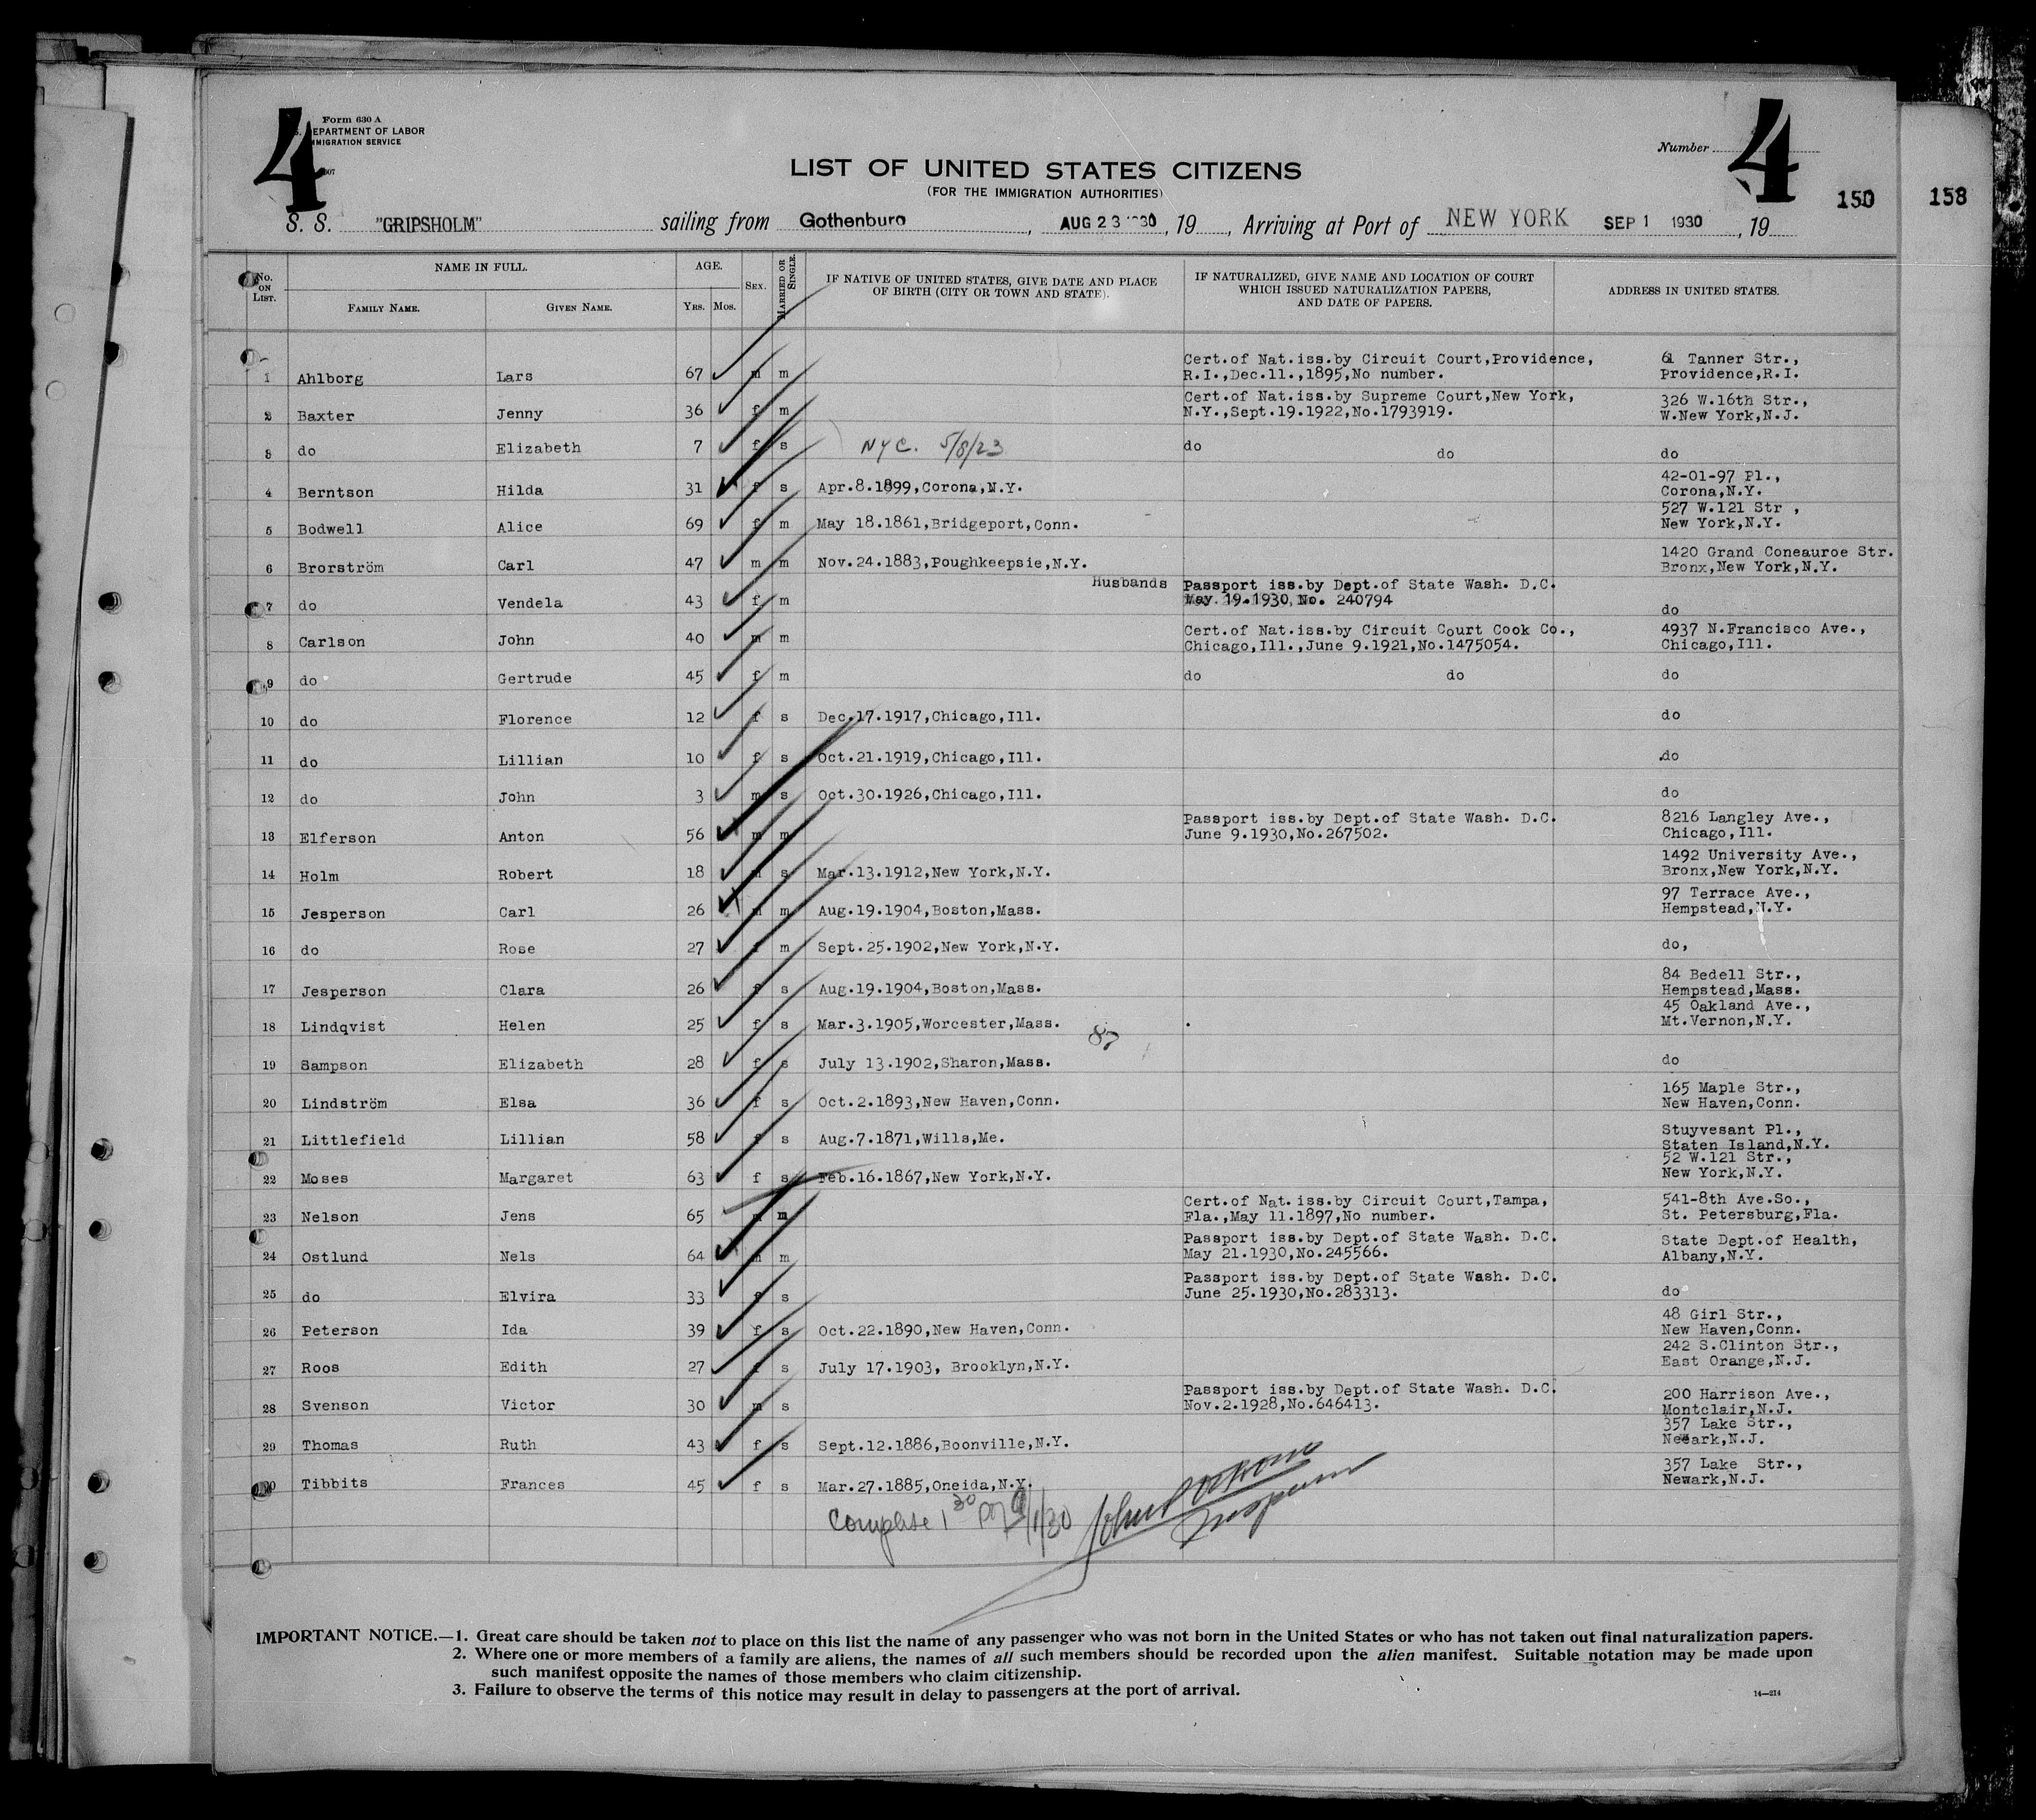 4
Form 630 A
DEPARTMENT OF LABOR
IMMIGRATION SERVICE
Number
4
150
158
LIST OF UNITED STATES CITIZENS
(FOR THE IMMIGRATION AUTHORITIES)
S. S. "GRIPSHOLM" sailing from Gothenburg, AUG 23 1930, 19, Arriving at Port of NEW YORK SEP 1 1930, 19
No. ON LIST. NAME IN FULL. AGE. SEX. MARRIED OR SINGLE. IF NATIVE OF UNITED STATES, GIVE DATE AND PLACE OF BIRTH (CITY OR TOWN AND STATE). IF NATURALIZED, GIVE NAME AND LOCATION OF COURT WHICH ISSUED NATURALIZATION PAPERS, AND DATE OF PAPERS. ADDRESS IN UNITED STATES.
FAMILY NAME. GIVEN NAME. YRS. MOS.
1 Ahlborg Lars 67 m m Cert.of Nat.iss.by Circuit Court,Providence, R.I.,Dec.11.,1895,No number. 61 Tanner Str., Providence,R.I.
2 Baxter Jenny 36 f m Cert.of Nat.iss.by Supreme Court,New York, N.Y.,Sept.19.1922,No.1793919. 326 W.16th Str., W.New York,N.J.
3 do Elizabeth 7 f s NYC. 5/8/23 do do do
4 Berntson Hilda 31 f s Apr.8.1899,Corona,N.Y. 42-01-97 Pl., Corona,N.Y.
5 Bodwell Alice 69 f m May 18.1861,Bridgeport,Conn. 527 W.121 Str , New York,N.Y.
6 Brorström Carl 47 m m Nov.24.1883,Poughkeepsie,N.Y. 1420 Grand Coneauroe Str. Bronx,New York,N.Y.
7 do Vendela 43 f m Husbands Passport iss.by Dept.of State Wash. D.C. May 19.1930,No. 240794 do
8 Carlson John 40 m m Cert.of Nat.iss.by Circuit Court Cook Co., Chicago,Ill.,June 9.1921,No.1475054. 4937 N.Francisco Ave., Chicago,Ill.
9 do Gertrude 45 f m do do do
10 do Florence 12 f s Dec.17.1917,Chicago,Ill. do
11 do Lillian 10 f s Oct.21.1919,Chicago,Ill. do
12 do John 3 m s Oct.30.1926,Chicago,Ill. do
13 Elferson Anton 56 m m Passport iss.by Dept.of State Wash. D.C. June 9.1930,No.267502. 8216 Langley Ave., Chicago,Ill.
14 Holm Robert 18 m s Mar.13.1912,New York,N.Y. 1492 University Ave., Bronx,New York,N.Y.
15 Jesperson Carl 26 m m Aug.19.1904,Boston,Mass. 97 Terrace Ave., Hempstead,N.Y.
16 do Rose 27 f m Sept.25.1902,New York,N.Y. do,
17 Jesperson Clara 26 f s Aug.19.1904,Boston,Mass. 84 Bedell Str., Hempstead,Mass.
18 Lindqvist Helen 25 f s Mar.3.1905,Worcester,Mass. 45 Oakland Ave., Mt.Vernon,N.Y.
19 Sampson Elizabeth 28 f s July 13.1902,Sharon,Mass. do
20 Lindström Elsa 36 f s Oct.2.1893,New Haven,Conn. 165 Maple Str., New Haven,Conn.
21 Littlefield Lillian 58 f s Aug.7.1871,Wills,Me. Stuyvesant Pl., Staten Island,N.Y.
22 Moses Margaret 63 f s Feb.16.1867,New York,N.Y. 52 W.121 Str., New York,N.Y.
23 Nelson Jens 65 m Cert.of Nat.iss.by Circuit Court,Tampa, Fla.,May 11.1897,No number. 541-8th Ave.So., St. Petersburg,Fla.
24 Ostlund Nels 64 m m Passport iss.by Dept.of State Wash. D.C. May 21.1930,No.245566. State Dept.of Health, Albany,N.Y.
25 do Elvira 33 f s Passport iss.by Dept.of State Wash. D.C. June 25.1930,No.283313. do
26 Peterson Ida 39 f s Oct.22.1890,New Haven,Conn. 48 Girl Str., New Haven,Conn.
27 Roos Edith 27 f s July 17.1903, Brooklyn,N.Y. 242 S.Clinton Str., East Orange,N.J.
28 Svenson Victor 30 m s Passport iss.by Dept.of State Wash. D.C. Nov.2.1928,No.646413. 200 Harrison Ave., Montclair,N.J.
29 Thomas Ruth 43 f s Sept.12.1886,Boonville,N.Y. 357 Lake Str., Newark,N.J.
30 Tibbits Frances 45 f s Mar.27.1885,Oneida,N.Y. 357 Lake Str., Newark,N.J.
Complete 1 30 9/1/30
Inspector
IMPORTANT NOTICE.—1. Great care should be taken not to place on this list the name of any passenger who was not born in the United States or who has not taken out final naturalization papers.
2. Where one or more members of a family are aliens, the names of all such members should be recorded upon the alien manifest. Suitable notation may be made upon
such manifest opposite the names of those members who claim citizenship.
3. Failure to observe the terms of this notice may result in delay to passengers at the port of arrival.
14—214